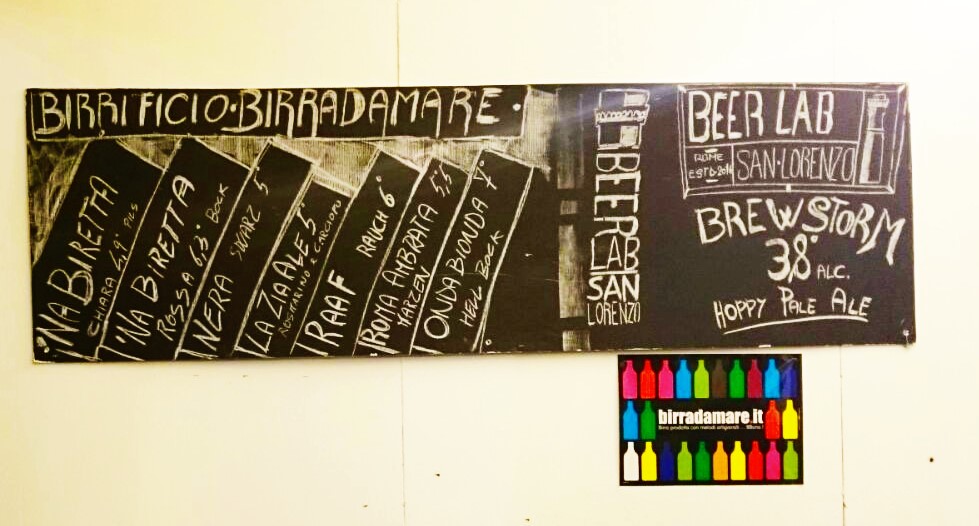 BIRRIFICIO·BIRRADAMARE·
'NA BIRETTA
CHIARA 4,9° PILS
'NA BIRETTA
ROSSA 6,3° BOCK
NERA SWARZ 5°
LA ZIA ALE 5°
ROSMARINO e CARCIOFO
RAAF RAUCH 6°
ROMA AMBRATA 5,5
MARZEN
ONDA BIONDA 7°
HELL BOCK
BEER
LAB
SAN
LORENZO
BEER LAB
ROME
ESTD·2014
SAN·LORENZO
BREWSTORM
3,8° ALC.
HOPPY PALE ALE
birradamare.it
Birra prodotta con metodi artigianali